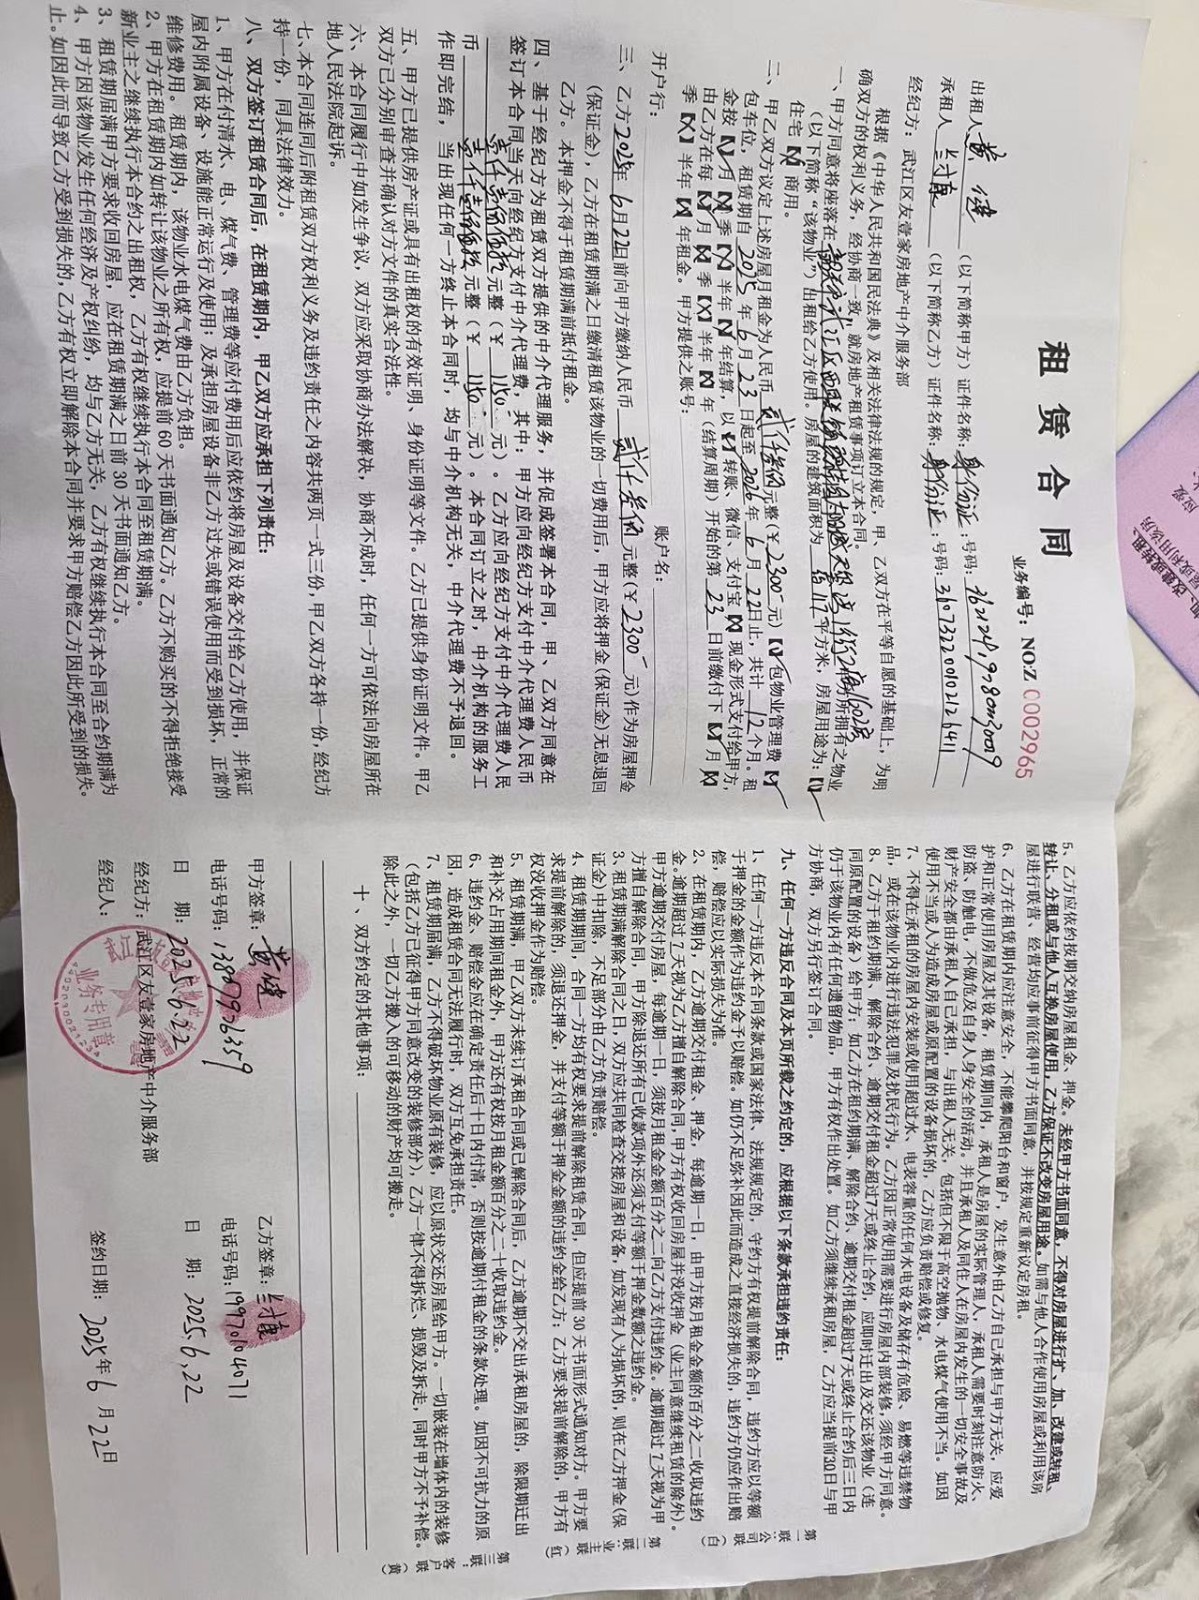 租赁合同
业务编号：NO:Z 00002965
出租人 黄健 （以下简称甲方）证件名称：身份证：号码：
承租人 兰才康 （以下简称乙方）证件名称：身份证：号码：3607332000102126411
经纪方：武江区友壹家房地产中介服务部
根据《中华人民共和国民法典》及相关法律法规的规定，甲、乙双方在平等自愿的基础上，为明
确双方的权利义务，经协商一致，就房地产租赁事项订立本合同。
一、甲方同意将座落在 房所拥有之物业
（以下简称“该物业”）出租给乙方使用。房屋的建筑面积为 117平方米，房屋用途为：【√】
住宅【×】商用。
二、甲乙双方议定上述房屋月租金为人民币 贰仟叁佰元整（￥2300-元）【×】包物业管理费【×】
包车位，租赁期自 2025 年 6 月 23 日起至 2026 年 6 月 22 日止，共计 12 个月。租
金按【√】月【×】季【×】半年【×】年结算，以【√】转账、微信、支付宝【×】现金形式支付给甲方，
由乙方在每【√】月【×】季【×】半年【×】年（结算周期）开始的第 23 日前缴付下【√】月【×】
季【×】半年【×】年租金。甲方提供之账号：
开户行： 账户名：
三、乙方2025年6月22日前向甲方缴纳人民币 贰仟叁佰 元整（￥2300-元）作为房屋押金
（保证金），乙方在租赁期满之日缴清租赁该物业的一切费用后，甲方应将押金（保证金）无息退回
乙方。本押金不得于租赁期满前抵付租金。
四、基于经纪方为租赁双方提供的中介代理服务，并促成签署本合同，甲、乙双方同意在
签订本合同当天向经纪方支付中介代理费，其中：甲方应向经纪方支付中介代理费人民币
元整（￥ 元）。乙方应向经纪方支付中介代理费人民
币 元整（￥ 元）。本合同订立之时，中介机构的服务工
作即完结，当出现任何一方终止本合同时，均与中介机构无关，中介代理费不予退回。
五、甲方已提供房产证或具有出租权的有效证明、身份证明等文件。乙方已提供身份证明文件。甲乙
双方已分别审查并确认对方文件的真实合法性。
六、本合同履行中如发生争议，双方应采取协商办法解决，协商不成时，任何一方可依法向房屋所在
地人民法院起诉。
七、本合同连同后附租赁双方权利义务及违约责任之内容共两页一式三份，甲乙双方各持一份，经纪方
持一份，同具法律效力。
八、双方签订租赁合同后，在租赁期内，甲乙双方应承担下列责任：
1、甲方在付清水、电、煤气费、管理费等应付费用后应依约将房屋及设备交付给乙方使用，并保证
屋内附属设备、设施能正常运行及使用；及承担房屋设备非乙方过失或错误使用而受到损坏，正常的
维修费用。租赁期内，该物业水电煤气费由乙方负担。
2、甲方在租赁期内如转让该物业之所有权，应提前 60 天书面通知乙方。乙方不购买的不得拒绝接受
新业主之继续执行本合约之出租权，乙方有权继续执行本合同至租赁期满。
3、租赁期届满甲方要求收回房屋，应在租赁期满之日前 30 天书面通知乙方。
4、甲方因该物业发生任何经济及产权纠纷，均与乙方无关，乙方有权继续执行本合同至合约期满为
止。如因此而导致乙方受到损失的，乙方有权立即解除本合同并要求甲方赔偿乙方因此所受到的损失。
5、乙方应依约按期交纳房屋租金、押金。未经甲方书面同意，不得对房屋进行扩、加、改建或转租、
转让、分租或与他人互换房屋使用，乙方保证不改变房屋用途。如需与他人合作使用房屋或利用该房
屋进行联营、经营均应事前征得甲方书面同意，并按规定重新议定房租。
6、乙方在租赁期内应注意安全，不能攀爬阳台和窗户，发生意外由乙方自己承担与甲方无关，应爱
护和正常使用房屋及其设备，租赁期间内，承租人是房屋的实际管理人，承租人需要时刻注意防火、
防盗、防触电，不做危及自身人身安全的活动。并且承租人及同住人在房屋内发生的一切安全事故及
财产安全都由承租人自己承担，与出租人无关，包括但不限于高空抛物、水电煤气使用不当。如因
使用不当或人为造成房屋或原配置的设备损坏的，乙方应负责赔偿或修复。
7、不得在承租的房屋内安装或使用超过水、电表容量的任何水电设备及储存有危险、易燃等违禁物
品，或在该物业内进行违法犯罪及扰民行为。乙方因正常使用需要进行房屋内部装修，须经甲方同意。
8、乙方于租约期满、解除合约、逾期交付租金超过7天或终止合约，应即时迁出及交还该物业（连
同原配置的设备）给甲方；如乙方在租约期满、解除合约、逾期交付租金超过7天或终止合约后三日内
仍于该物业内有任何遗留物品，甲方有权作出处置。如乙方须继续承租房屋，乙方应当提前30日与甲
方协商，双方另行签订合同。
九、任何一方违反合同及本页所载之约定的，应根据以下条款承担违约责任：
1、任何一方违反本合同条款或国家法律、法规规定的，守约方有权提前解除合同，违约方应以等额
于押金的金额作为违约金予以赔偿。如仍不足弥补因此而造成之直接经济损失的，违约方仍应作出赔
偿，赔偿应以实际损失为准。
2、在租赁期内，乙方逾期交付租金、押金，每逾期一日，由甲方按月租金金额的百分之二收取违约
金。逾期超过 7 天视为乙方擅自解除合同，甲方有权收回房屋并没收押金（业主同意继续租赁的除外）。
甲方逾期交付房屋，每逾期一日，须按月租金金额百分之二向乙方支付违约金。逾期超过 7 天视为甲
方擅自解除合同，甲方除退还所有已收款项外还须支付等额于押金数额之违约金。
3、租赁期满解除合同之日，双方应共同检查交接房屋和设备，如发现有人为损坏的，则在乙方押金（保
证金）中扣除，不足部分由乙方负责赔偿。
4、租赁期期间，合同一方均有权要求提前解除租赁合同，但应提前 30 天书面形式通知对方。甲方要
求提前解除的，须退还押金，并支付等额于押金金额的违约金给乙方；乙方要求提前解除的，甲方有
权没收押金作为赔偿。
5、租赁期满，甲乙双方未续订承租合同或已解除合同后，乙方逾期不交出承租房屋的，除限期迁出
和补交占用期间租金外，甲方还有权按月租金额百分之二十收取违约金。
6、违约金、赔偿金应在确定责任后十日内付清，否则按逾期付租金的条款处理。如因不可抗力的原
因，造成租赁合同无法履行时，双方互免承担责任。
7、租赁期届满，乙方不得破坏物业原有装修，应以原状交还房屋给甲方。一切嵌装在墙体内的装修
（包括乙方已征得甲方同意改变的装修部分），乙方一律不得拆烂、损毁及拆走，同时甲方不予补偿。
除此之外，一切乙方搬入的可移动的财产均可搬走。
十、双方约定的其他事项：
甲方签章：黄健 乙方签章：兰才康
电话号码：13809736359 电话号码：19970104071
日 期：2025.6.22 日 期：2025.6.22
经纪方：武江区友壹家房地产中介服务部
经纪人： 签约日期：2025年6月22日
业务专用章
第一联：公司联（白）
第二联：业主联（红）
第三联：客户联（黄）